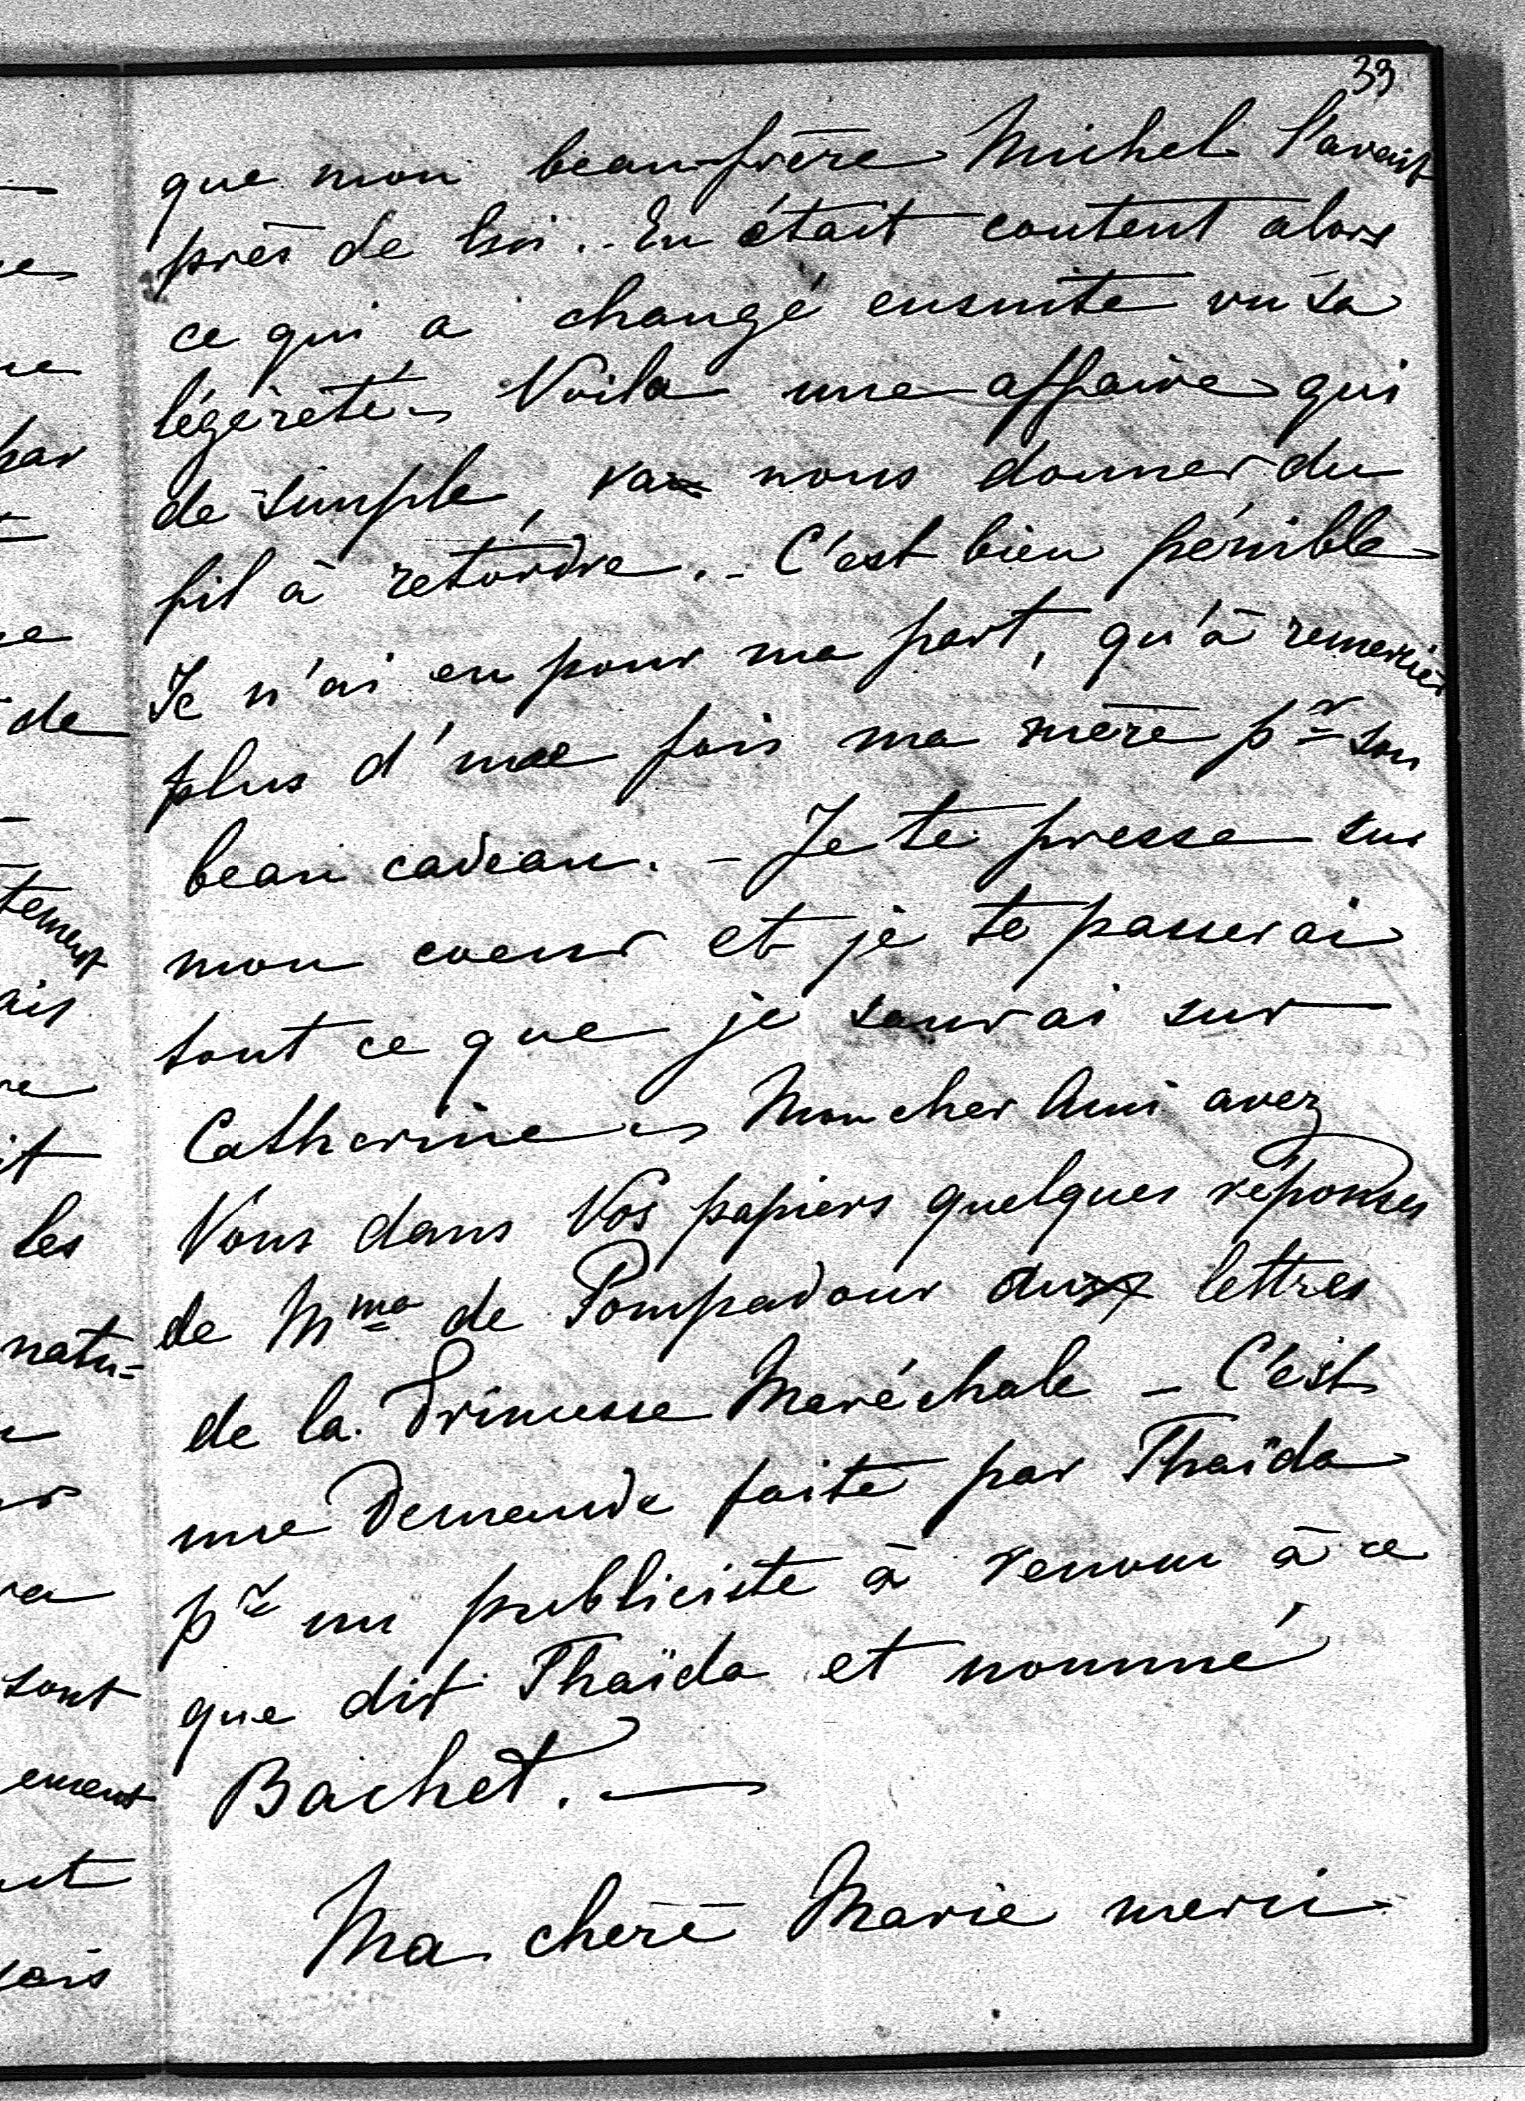 39
que mon beau-frère Michel l'avait
près de lui.. En était content alors
ce qui a changé ensuite vu sa
légèreté. Voila une affaire qui
de simple, va nous donner du
fil à retordre. - C'est bien pénible
Je n'ai eu pour ma part, qu'à remercier
plus d'une fois ma mère pr son
beau cadeau. - Je te presse sur
mon coeur et je te passerai
tout ce que je saurai sur
Catherine. Mon cher Ami avez
Vous dans Vos papiers quelques réponses
de Mme de Pompadour aux lettres
de la Princesse Maréchale - C'est
une Demande faite par Thaïda
pr un publiciste à renom à ce
que dit Thaïda et nommé
Bachet. -
Ma chère Marie merci
par
de
tement
ais
it
les
natu=
sont
ement